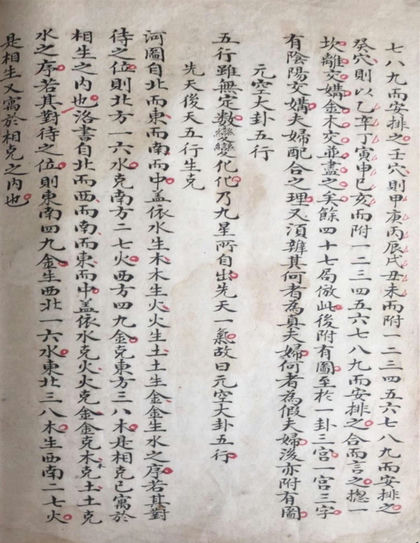 七八九而安排之壬穴則甲庚丙辰戌丑未而附一二三四五六七八九而安排之
癸穴則以乙辛丁寅申巳亥而附一二三四五六七八九而安排之合而言之摠一
坎離交媾金木交並盡之矣餘四十七局倣此後附有圖至於一卦三宮一宮三字
有陰陽交媾夫婦配合之理又須辨其何者為真夫婦何者為假夫婦後亦附有圖
元空大卦五行
五行雖無定数變變化化乃九星所自出先天一氣故曰元空大卦五行
先天後天五行生克
河圖自北而東而南而中盖依水生木木生火火生土土生金金生水之序若其對
待之位則北方一六水克南方二七火西方四九金克東方三八木是相克已寓於
相生之内也洛書自北而西而南而東而中盖依水克火火克金金克木木克土土克
水之序若其對待之位則東南四九金生西北一六水東北三八木生西南二七火
是相生寓於相克之内也